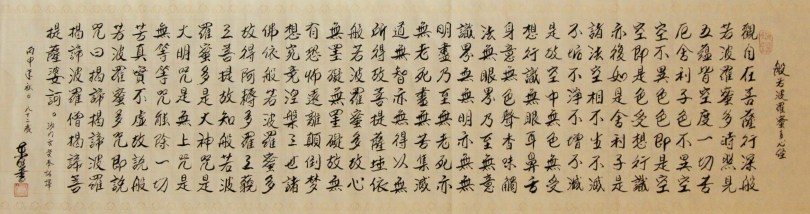 般若波羅蜜多心經
觀自在菩薩行深般
若波羅蜜多時照見
五蘊皆空度一切苦
厄舍利子色不異空
空不異色色即是空
空即是色受想行識
亦復如是舍利子是
諸法空相不生不滅
不垢不淨不增不減
是故空中無色無受
想行識無眼耳鼻舌
身意無色聲香味觸
法無眼界乃至無意
識界無無明亦無無
明盡乃至無老死亦
無老死盡無苦集滅
道無智亦無得以無
所得故菩提薩埵依
般若波羅蜜多故心
無罣礙無罣礙故無
有恐怖遠離顛倒夢
想究竟涅槃三世諸
佛依般若波羅蜜多
故得阿耨多羅三藐
三菩提故知般若波
羅蜜多是大神咒是
大明咒是無上咒是
無等等咒能除一切
苦真實不虛故說般
若波羅蜜多咒即說
咒曰揭諦揭諦波羅
揭諦波羅僧揭諦菩
提薩婆訶。沙門玄奘奉詔譯
丙申年秋日